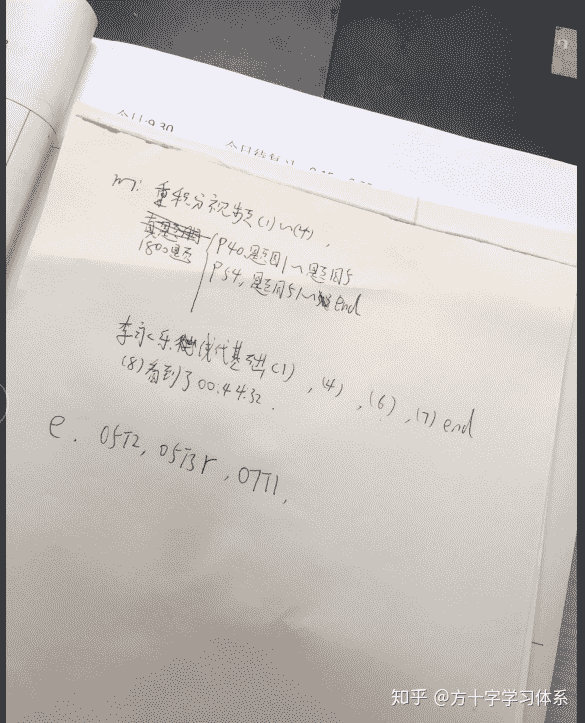 今日9.30
m: 重积分视频(1)~(4),
1800题
P40,题目1~题目5
P54,题目51~end
李永乐线代基础(1),(4),(6),(7)end
(8)看到了00:44:32.
e. 05T2, 05T3r, 07T1,
知乎 @方十字学习体系